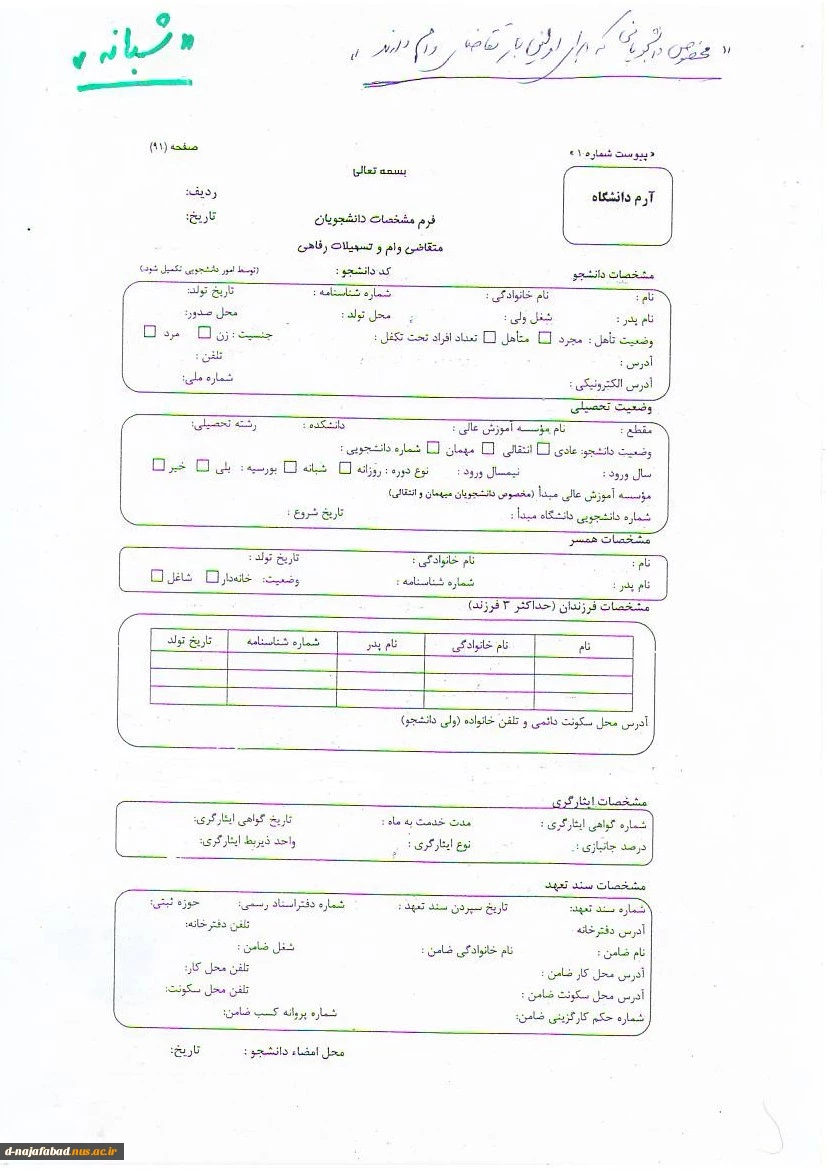 « مخصوص دانشجویانی که برای اولین بار تقاضای وام دارند »
« شبانه »
« پیوست شماره ۱ »
صفحه (۹۱)
بسمه تعالی
آرم دانشگاه
ردیف:
فرم مشخصات دانشجویان
تاریخ:
متقاضی وام و تسهیلات رفاهی
مشخصات دانشجو
کد دانشجو :
(توسط امور دانشجویی تکمیل شود.)
نام : نام خانوادگی : شماره شناسنامه : تاریخ تولد:
نام پدر : شغل ولی : محل تولد : محل صدور:
وضعیت تأهل : مجرد □ متأهل □ تعداد افراد تحت تکفل : جنسیت : زن □ مرد □
آدرس : تلفن :
آدرس الکترونیکی : شماره ملی:
وضعیت تحصیلی
مقطع : نام مؤسسه آموزش عالی : دانشکده : رشته تحصیلی:
وضعیت دانشجو: عادی □ انتقالی □ مهمان □ شماره دانشجویی :
سال ورود : نیمسال ورود : نوع دوره : روزانه □ شبانه □ بورسیه : بلی □ خیر □
مؤسسه آموزش عالی مبدأ (مخصوص دانشجویان میهمان و انتقالی)
شماره دانشجویی دانشگاه مبدأ : تاریخ شروع :
مشخصات همسر
نام : نام خانوادگی : تاریخ تولد :
نام پدر : شماره شناسنامه : وضعیت: خانه‌دار □ شاغل □
مشخصات فرزندان (حداکثر ۳ فرزند)
نام نام خانوادگی نام پدر شماره شناسنامه تاریخ تولد
آدرس محل سکونت دائمی و تلفن خانواده (ولی دانشجو)
مشخصات ایثارگری
شماره گواهی ایثارگری : مدت خدمت به ماه : تاریخ گواهی ایثارگری:
درصد جانبازی : نوع ایثارگری : واحد ذیربط ایثارگری:
مشخصات سند تعهد
شماره سند تعهد: تاریخ سپردن سند تعهد : شماره دفتراسناد رسمی: حوزه ثبتی:
آدرس دفترخانه : تلفن دفترخانه:
نام ضامن : نام خانوادگی ضامن : شغل ضامن :
آدرس محل کار ضامن : تلفن محل کار:
آدرس محل سکونت ضامن : تلفن محل سکونت:
شماره حکم کارگزینی ضامن: شماره پروانه کسب ضامن:
محل امضاء دانشجو : تاریخ:
d-najafabad.nus.ac.ir